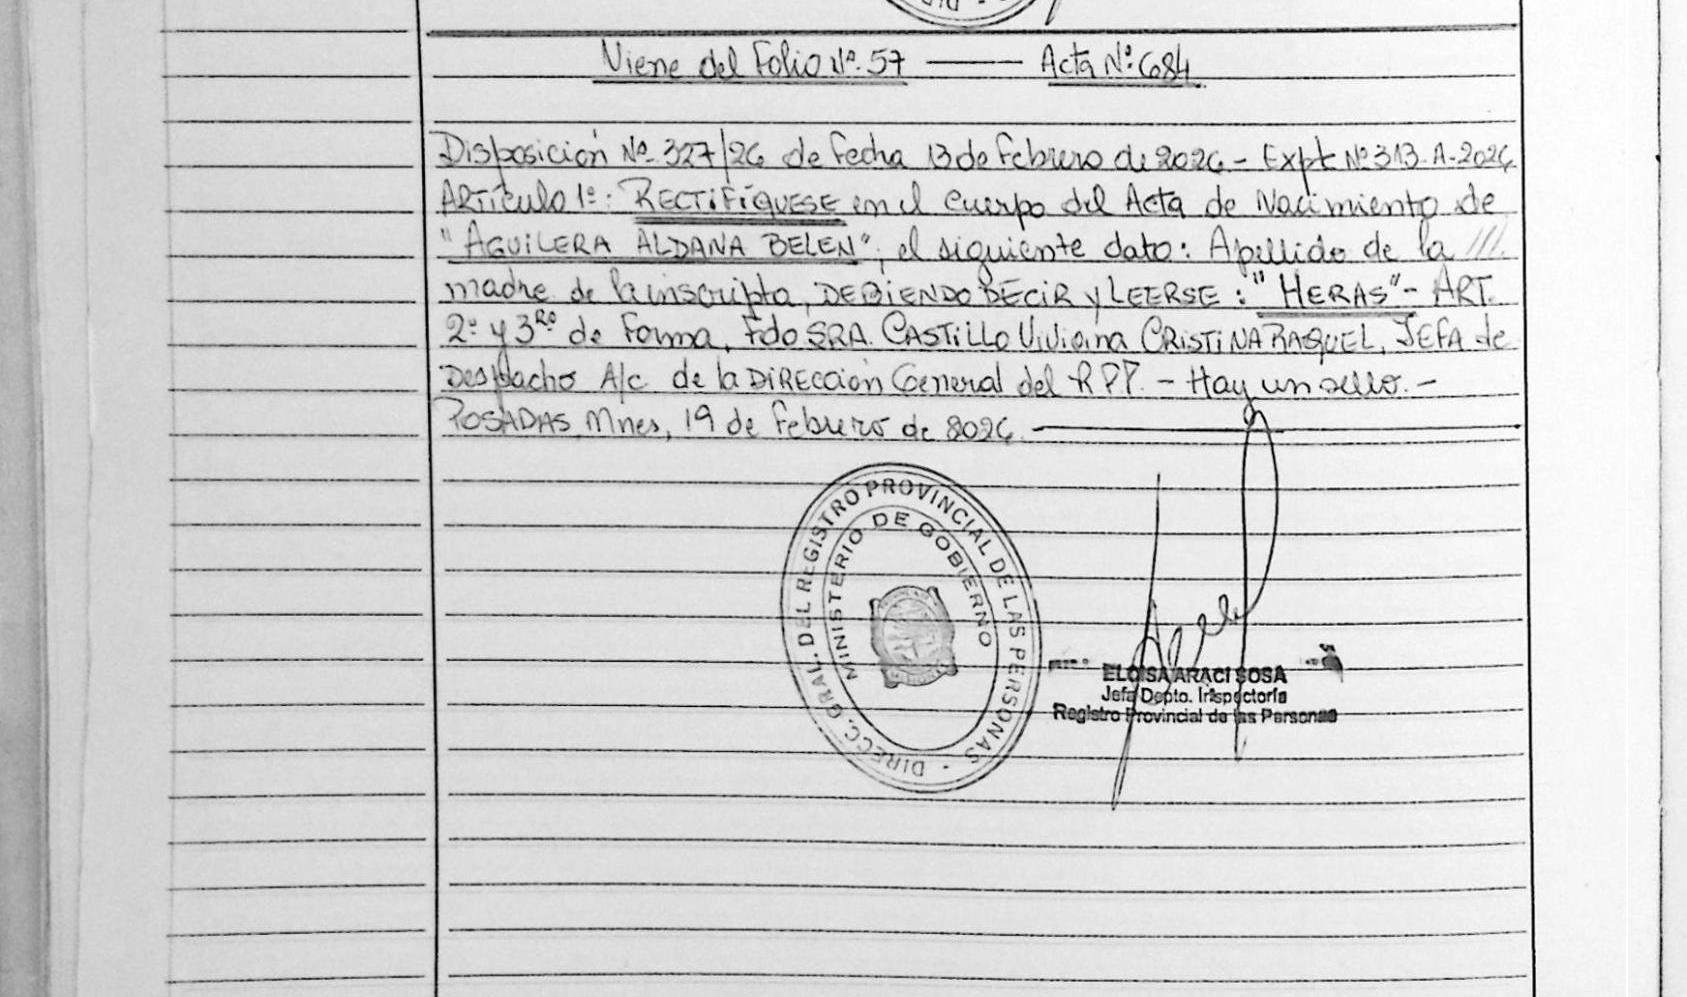 Viene del Folio Nº. 57 —— Acta Nº: 684
Disposición Nº. 327/26 de fecha 13 de febrero de 2026.- Expte Nº 313-A-2026
Artículo 1º: RECTIFÍQUESE en el cuerpo del Acta de Nacimiento de
"AGUILERA ALDANA BELEN", el siguiente dato: Apellido de la ///.
madre de la inscripta, DEBIENDO DECIR y LEERSE: "HERAS"- ART.
2º y 3RO de forma, Fdo SRA. CASTILLO Viviana CRISTINA RAQUEL, JEFA de
Despacho A/c de la DIRECCIÓN General del RPP. - Hay un sello. -
POSADAS, Mnes, 19 de febrero de 2026. ——
DIRECC. GRAL. DEL REGISTRO PROVINCIAL DE LAS PERSONAS
MINISTERIO DE GOBIERNO
ELOISA ARACI SOSA
Jefa Depto. Inspectoría
Registro Provincial de las Personas